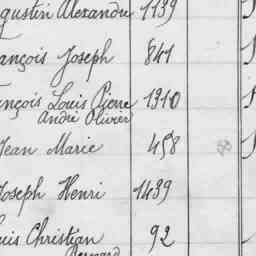 gustin Alexandre 1139
ançois Joseph 841
ançois Louis Pierre 1310
André Olivier
Jean Marie 458
Joseph Henri 1439
uis Christian 92
Bernard